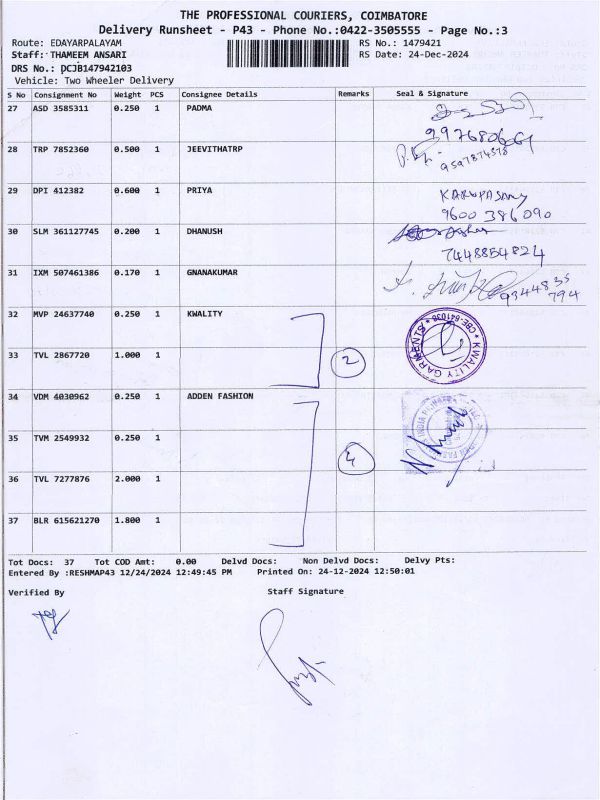 THE PROFESSIONAL COURIERS, COIMBATORE
Delivery Runsheet - P43 - Phone No.:0422-3505555 - Page No.:3
Route: EDAYARPALAYAM RS No.: 1479421
Staff: THAMEEM ANSARI RS Date: 24-Dec-2024
DRS No.: DCJB147942103
Vehicle: Two Wheeler Delivery
S No Consignment No Weight PCS Consignee Details Remarks Seal & Signature
27 ASD 3585311 0.250 1 PADMA
28 TRP 7852360 0.500 1 JEEVITHATRP
9597874378
29 DPI 412382 0.600 1 PRIYA KARUPASAMY
9600 386 090
30 SLM 361127745 0.200 1 DHANUSH
7448854824
31 IXM 507461386 0.170 1 GNANAKUMAR
9344835
794
32 MVP 24637740 0.250 1 KWALITY
33 TVL 2867720 1.000 1 2 KWALITY GARMENTS * CBE-641038 *
34 VDM 4030962 0.250 1 ADDEN FASHION
35 TVM 2549932 0.250 1 4
36 TVL 7277876 2.000 1
37 BLR 615621270 1.800 1
Tot Docs: 37 Tot COD Amt: 0.00 Delvd Docs: Non Delvd Docs: Delvy Pts:
Entered By :RESHMAP43 12/24/2024 12:49:45 PM Printed On: 24-12-2024 12:50:01
Verified By Staff Signature